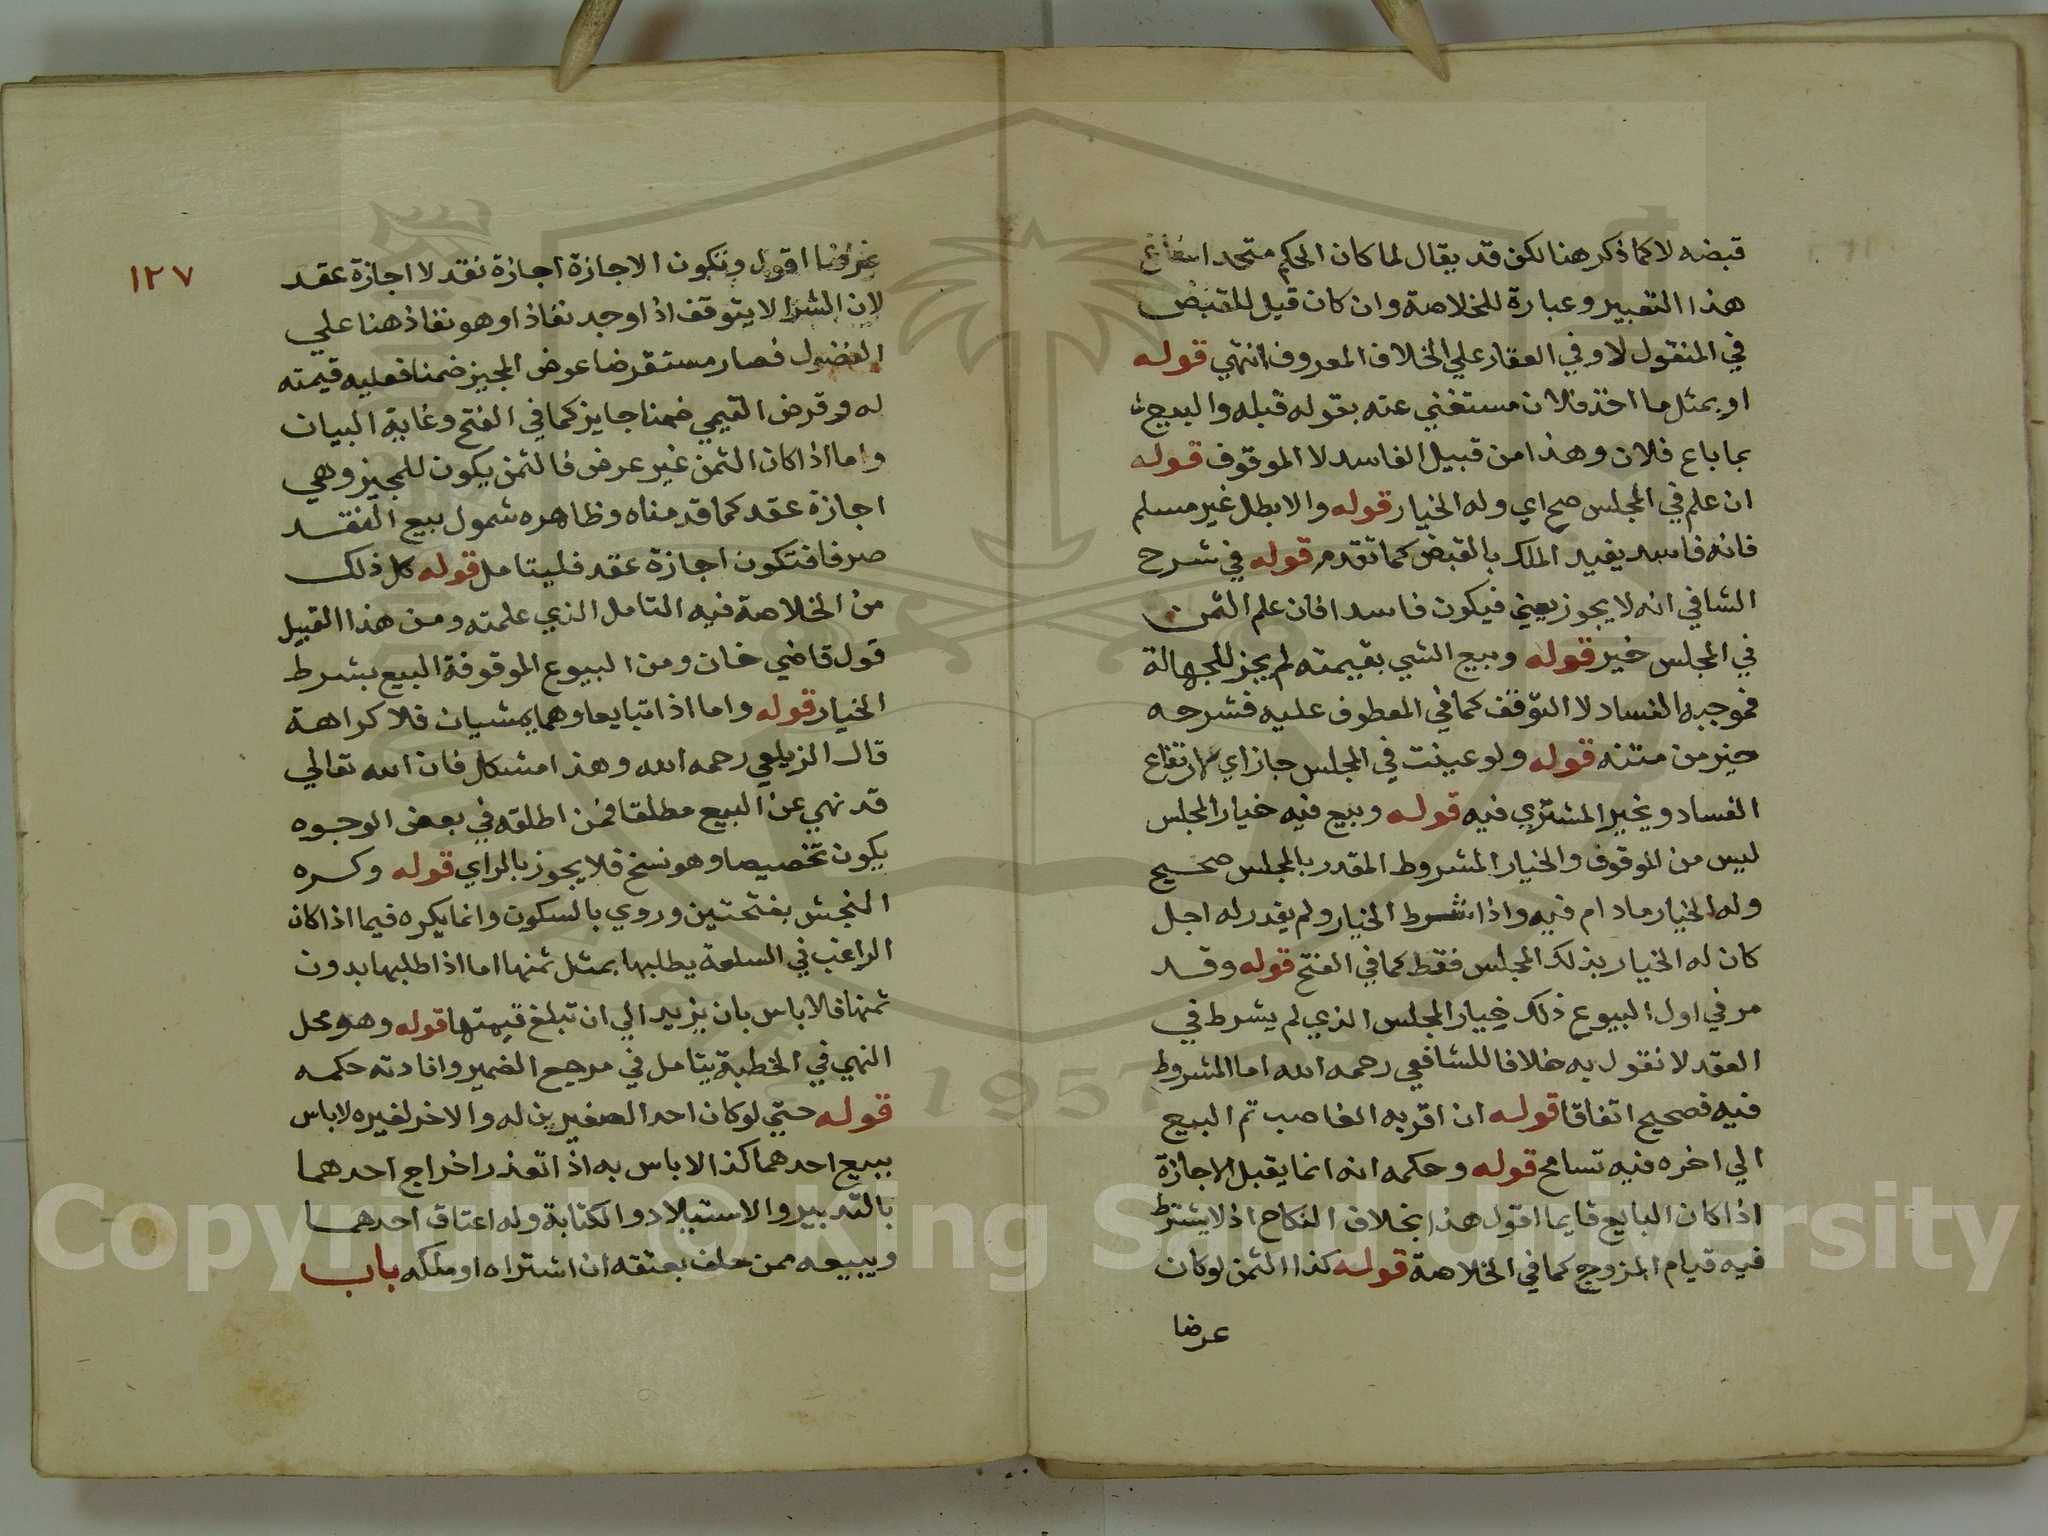 قبضه لا كما ذكر هنا لكن قد يقال لما كان الحكم متحدا
هذا التعبير وعبارة للخلاصة وان كان قيل للقبض
في المنقول لا وفي العقار علي الخلاف المعروف انتهي قوله
او بمثل ما اخذ فلان مستغني عنه بقوله قبله والبيع
بما باع فلان وهذا من قبيل الفاسد لا الموقوف قوله
ان علم في المجلس صح اي وله الخيار قوله والا بطل غير مسلم
فانه فاسد يفيد الملك بالقبض كما تقدم قوله في شرح
الشافي انه لا يجوز يعني فيكون فاسدا فان علم الثمن
في المجلس خير قوله وبيع الشي بقيمته لم يجز للجهالة
فموجبه الفساد لا التوقف كما في المعطوف عليه فشرحه
خير من متنه قوله ولو عينت في المجلس جاز اي لارتفاع
الفساد ويخير المشتري فيه قوله وبيع فيه خيار المجلس
ليس من الموقوف والخيار المشروط المقدر بالمجلس صحيح
وله الخيار مادام فيه واذا شرط الخيار ولم يقدر له اجل
كان له الخيار بذلك المجلس فقط كما في الفتح قوله وقد
مر في اول البيوع ذلك خيار المجلس الذي لم يشرط في
العقد لا نقول به خلافا للشافعي رحمه الله اما المشروط
فيه فصحيح اتفاقا قوله ان اقر به الغاصب تم البيع
الي اخره فيه تسامح قوله وحكمه انه انما يقبل الاجازة
اذا كان البايع قايما اقول هذا بخلاف النكاح اذ لا يشترط
فيه قيام المزوج كما في الخلاصة قوله كذا الثمن لو كان
عرضا
١٢٧
عرضا اقول وتكون الاجازة اجازة نقد لا اجازة عقد
لان الشرا لا يتوقف اذا وجد نفاذا وهو نفاذ هنا علي
الفضول فصار مستقرضا عرض المجيز ضمنا فعليه قيمته
له وقرض القيمي ضمنا جايز كما في الفتح وغاية البيان
واما اذا كان الثمن غير عرض فالثمن يكون للمجيز وهي
اجازة عقد كما قدمناه وظاهره شمول بيع النقد
صرفا فتكون اجازة عقد فليتامل قوله كل ذلك
من الخلاصة فيه التامل الذي علمته ومن هذا القبيل
قول قاضي خان ومن البيوع الموقوفة البيع بشرط
الخيار قوله واما اذا تبايعا وهما يمشيان فلا كراهة
قال الزيلعي رحمه الله وهذا مشكل فان الله تعالي
قد نهي عن البيع مطلقا فمن اطلقه في بعض الوجوه
يكون تخصيصا وهو نسخ فلا يجوز بالراي قوله وكره
النجش بفتحتين وروي بالسكون وانما يكره فيما اذا كان
الراغب في السلعة يطلبها بمثل ثمنها اما اذا طلبها بدون
ثمنها فلا باس بان يزيد الي ان تبلغ قيمتها قوله وهو محل
النهي في الخطبة يتامل في مرجع الضمير وافادته حكمه
قوله حتي لو كان احد الصغيرين له والاخر لغيره لا باس
ببيع احدهما كذا لا باس به اذا تعذر اخراج احدهما
بالتدبير والاستيلاد والكتابة وله اعتاق احدهما
ويبيعه ممن حلف بعتقه ان اشتراه او ملكه باب
Copyright © King Saud University
1957